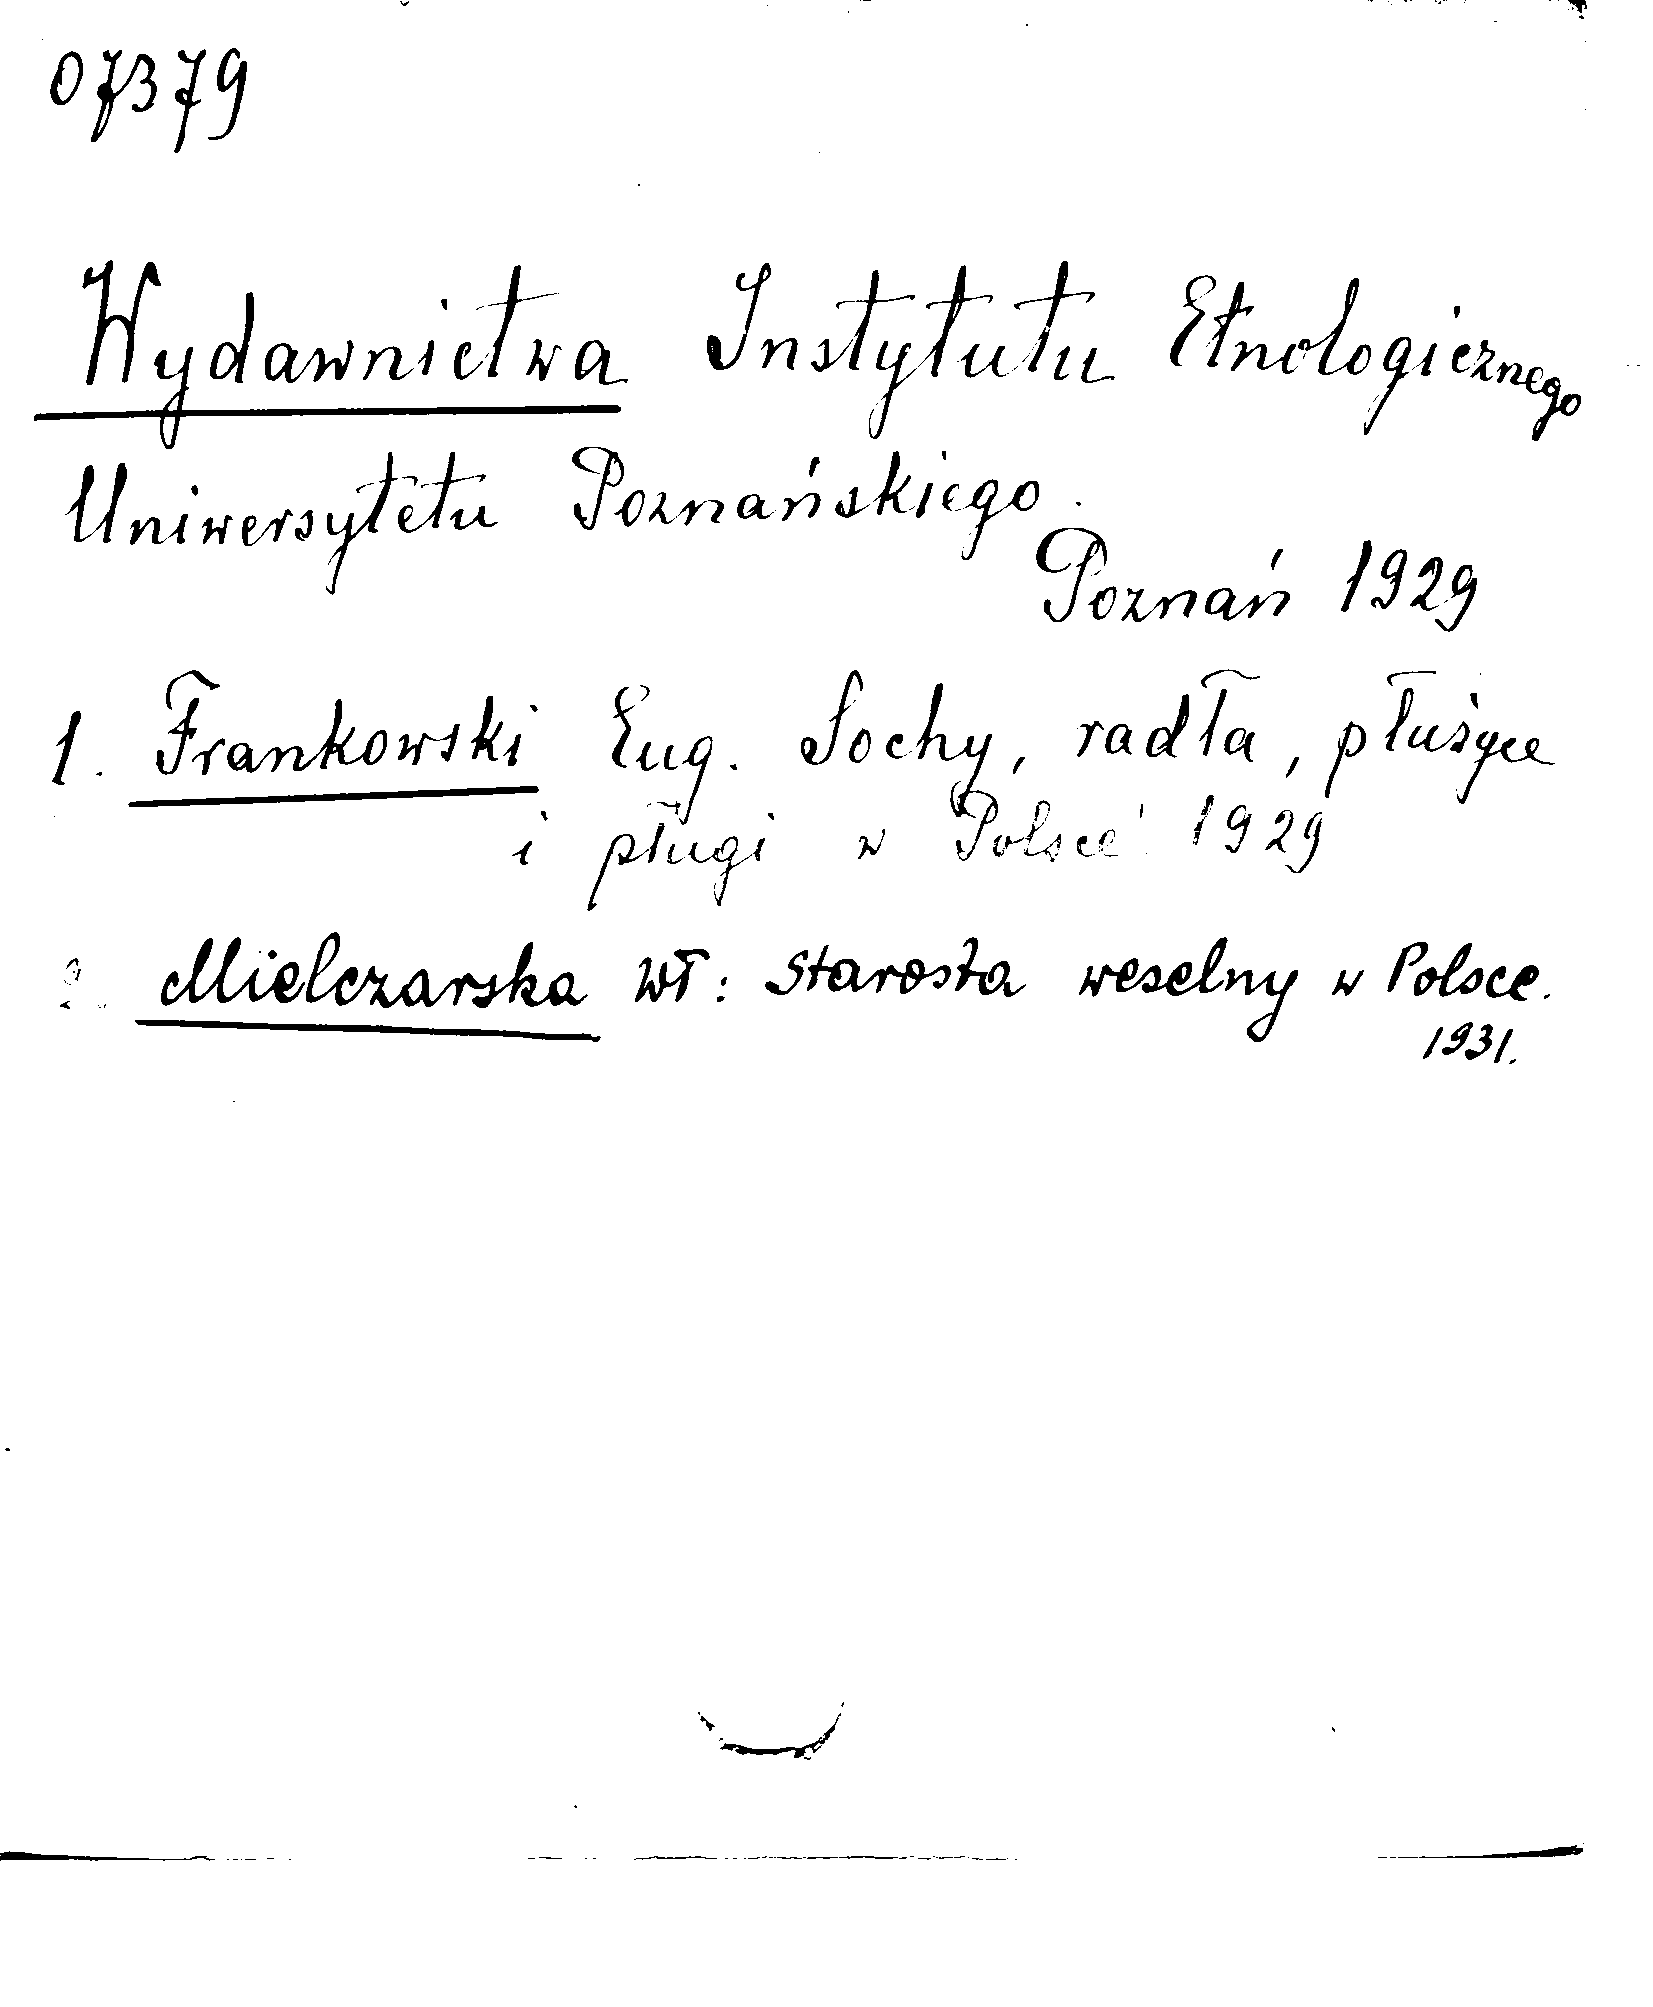 07379
Wydawnictwa Instytutu Etnologicznego
Uniwersytetu Poznańskiego.
Poznań 1929
1. Frankowski Eug. Sochy, radła, płużyce
i pługi w Polsce 1929
2. Mielczarska Wł: Starosta weselny w Polsce.
1931.